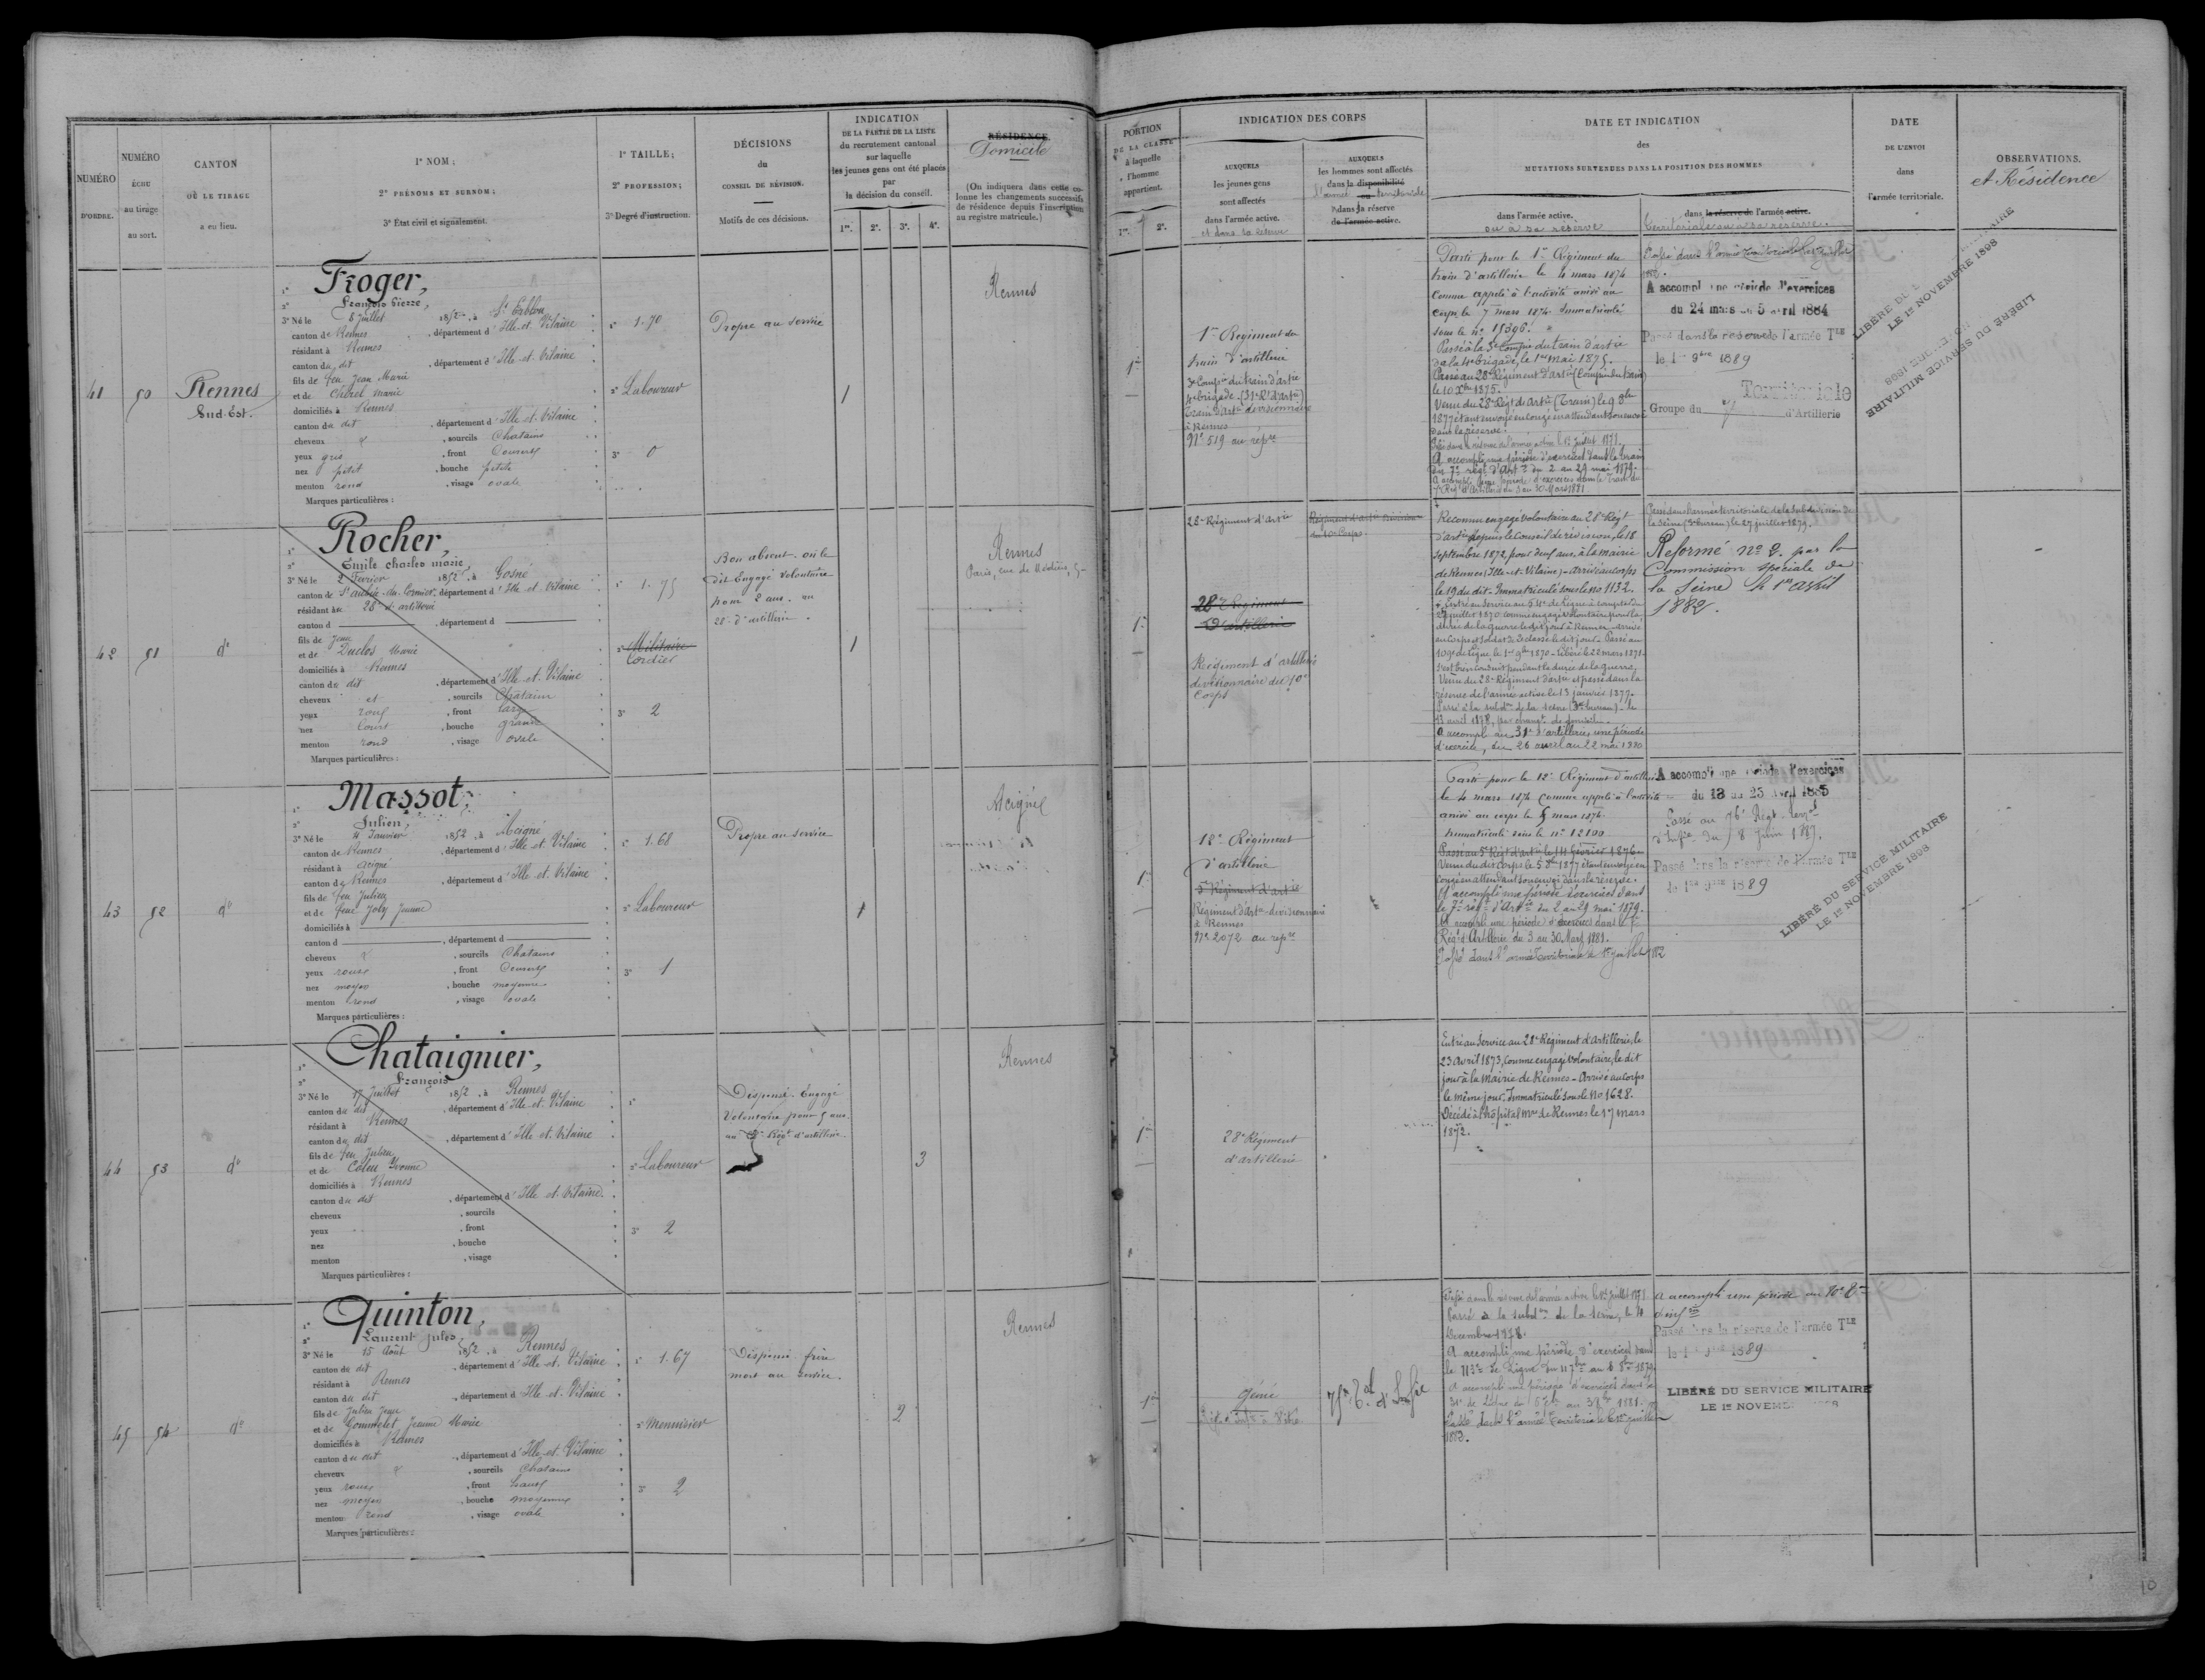 NUMÉRO
D'ORDRE.
NUMÉRO
ÉCHU
au tirage
au sort.
CANTON
OÙ LE TIRAGE
a eu lieu.
1° NOM;
2° PRÉNOMS ET SURNOM;
3° État civil et signalement.
1° TAILLE;
2° PROFESSION;
3° Degré d'instruction.
DÉCISIONS
du
CONSEIL DE RÉVISION.
Motifs de ces décisions.
INDICATION
DE LA PARTIE DE LA LISTE
du recrutement cantonal
sur laquelle
les jeunes gens ont été placés
par
la décision du conseil.
1re. 2e. 3e. 4e.
RÉSIDENCE
Domicile
(On indiquera dans cette co-
lonne les changements successifs
de résidence depuis l'inscription
au registre matricule.)
PORTION
DE LA CLASSE
à laquelle
l'homme
appartient.
1re. 2e.
INDICATION DES CORPS
AUXQUELS
les jeunes gens
sont affectés
dans l'armée active.
et dans la réserve
AUXQUELS
les hommes sont affectés
dans la disponibilité
ou
dans la réserve
de l'armée active.
DATE ET INDICATION
des
MUTATIONS SURVENUES DANS LA POSITION DES HOMMES
dans l'armée active.
ou à sa réserve
dans la réserve de l'armée active.
Territoriale ou à sa réserve.
DATE
DE L'ENVOI
dans
l'armée territoriale.
OBSERVATIONS.
et Résidence
41
50
Rennes
Sud-Est.
1° Froger,
2° François Pierre,
3° Né le 8 Juillet 1852, à St Erblon
canton de Rennes, département d'Ille-et-Vilaine
résidant à Rennes
canton du dit, département d'Ille-et-Vilaine
fils de feu Jean Marie
et de Chorel Marie
domiciliés à Rennes
canton du dit, département d'Ille-et-Vilaine
cheveux &, sourcils Chatains
yeux gris, front Couvert
nez petit, bouche petite
menton rond, visage ovale
Marques particulières :
1° 1.70
2° Laboureur
3° 0
Propre au service
1
Rennes
1re
1er Régiment du
train d'artillerie
3e Compie du train d'artie
4e brigade - (31e Rt d'artie)
Train d'artie divisionnaire
à Rennes
N° 519 au répre
Parti pour le 1er Régiment du
train d'artillerie le 4 mars 1874
comme appelé à l'activité arrivé au
corps le 7 mars 1874. Immatriculé
sous le n° 15396.
Passé à la 3e Compie du train d'artie
de la 4e brigade, le 1er mai 1875.
Passé au 28e Régiment d'artie (Compie du train)
le 10 Xbre 1875.
Venu du 28e Régt d'artie (Train) le 9 8bre
1877 étant envoyé en congé en attendant son envoi
dans la réserve.
Passé dans la réserve de l'armée active le 1er Juillet 1878.
A accompli une période d'exercices dans le train
du 7e régt d'Artie du 2 au 29 mai 1879.
A accompli une 2e période d'exercices dans le train du
7e Régt d'Artillerie du 3 au 30 Mars 1881
A accompli une période d'exercices
du 24 mars au 5 avril 1884
Passé dans la réserve de l'armée Tle
le 1er 9bre 1889
Territoriale
Groupe du d'Artillerie
LIBÉRÉ DU SERVICE MILITAIRE
LE 1er NOVEMBRE 1898
LIBÉRÉ DU SERVICE MILITAIRE
42
51
d°
1° Rocher,
2° Emile charles marie,
3° Né le 2 Février 1852, à Gosné
canton de St aubin-du-Cormier, département d'Ille-et-Vilaine
résidant au 28e d'artillerie
canton d, département d
fils de Jean
et de Duclos Marie
domiciliés à Rennes
canton du dit, département d'Ille-et-Vilaine
cheveux et, sourcils Chatains
yeux roux, front large
nez Court, bouche grande
menton rond, visage ovale
Marques particulières :
1° 1.75
2° Militaire
Cordier
3° 2
Bon absent. où le
dit Engagé Volontaire
pour 2 ans. au
28e d'artillerie.
1
Rennes
Paris, rue de Médicis, 5
1re
28e Régiment d'artie
28e Régiment
d'artillerie
Régiment d'artillerie
divisionnaire du 10e
Corps
Régiment d'artie division
du 10e Corps
Reconnu engagé volontaire au 28e Régt
d'artie depuis le Conseil de révision, le 18
Septembre 1872, pour deux ans, à la mairie
de Rennes (Ille-et-Vilaine) - Arrivé au corps
le 19 du dit - Immatriculé sous le no 1132.
Venu du 28e Régiment d'artie et passé dans la
réserve de l'armée active le 13 janvier 1877.
Passé à la subdon de la Seine (3me bureau) le
13 avril 1878, par changt de domicile.
A accompli au 31e d'artillerie, une période
d'exercice, du 26 avril au 22 mai 1880
Passé dans l'armée territoriale de la subdivision de
la Seine (3e bureau) le 27 juillet 1879.
Réformé n° 2. par la
Commission spéciale de
la Seine le 1er avril
1882.
43
52
d°
1° Massot,
2° Julien,
3° Né le 4 Janvier 1852, à Acigné
canton de Rennes, département d'Ille-et-Vilaine
résidant à Acigné
canton de Rennes, département d'Ille-et-Vilaine
fils de feu Julien
et de feue Joly Jeanne
domiciliés à
canton d, département d
cheveux &, sourcils Chatains
yeux roux, front Couvert
nez moyen, bouche moyenne
menton rond, visage ovale
Marques particulières :
1° 1.68
2° Laboureur
3° 1
Propre au service
1
Acigné
1re
12e Régiment
d'artillerie
5e Régiment d'artie
Régiment d'artie divisionnaire
à Rennes
N° 2072 au répre
Parti pour le 12e Régiment d'artillerie
le 4 mars 1874 comme appelé à l'activité
arrivé au corps le 5 mars 1874.
Immatriculé sous le n° 12100.
Passé au 5e Régt d'artie le 14 février 1876
Venu du dit Corps le 5 8bre 1877 étant envoyé en
congé en attendant son envoi dans la réserve.
A accompli une période d'exercices dans
le 7e régt d'Artie du 2 au 29 mai 1879.
A accompli une période d'exercices dans le 7e
Régt d'Artillerie du 3 au 30 Mars 1881.
Passé dans l'armée Territoriale le 1er juillet 1882
A accompli une période d'exercices
du 13 au 25 Avril 1885
Passé au 76e Régt Terral
d'Infie du 8 Juin 1887.
Passé dans la réserve de l'armée Tle
le 1er 9bre 1889
LIBÉRÉ DU SERVICE MILITAIRE
LE 1er NOVEMBRE 1898
44
53
d°
1° Chataignier,
2° François
3° Né le 17 Juillet 1852, à Rennes
canton du dit, département d'Ille-et-Vilaine
résidant à Rennes
canton du dit, département d'Ille-et-Vilaine
fils de feu Julien
et de Coleu Yvonne
domiciliés à Rennes
canton du dit, département d'Ille-et-Vilaine
cheveux, sourcils
yeux, front
nez, bouche
menton, visage
Marques particulières :
1°
2° Laboureur
3° 2
Dispensé. Engagé
Volontaire pour 5 ans
au Régt d'artillerie.
3
Rennes
1re
28e Régiment
d'artillerie
Entré au Service au 28e Régiment d'artillerie, le
23 avril 1873, Comme engagé volontaire, le dit
jour à la mairie de Rennes - Arrivé au corps
le même jour. Immatriculé sous le no 1628.
Décédé à l'hôpital mre de Rennes le 17 mars
1872.
45
54
d°
1° Quinton,
2° Laurent Jules,
3° Né le 15 Août 1852, à Rennes
canton du dit, département d'Ille-et-Vilaine
résidant à Rennes
canton du dit, département d'Ille-et-Vilaine
fils de Julien Jean
et de Gommelet Jeanne Marie
domiciliés à Rennes
canton du dit, département d'Ille-et-Vilaine
cheveux &, sourcils Chatains
yeux roux, front haut
nez moyen, bouche moyenne
menton rond, visage ovale
Marques particulières :
1° 1.67
2° Menuisier
3° 2
Dispensé. frère
mort au service.
2
Rennes
1re
Génie
Passé dans la réserve de l'armée active le 1er juillet 1878.
Passé à la subdon de la Seine, le 4
Décembre 1878.
A accompli une période d'exercices dans
le 113e de Ligne
Passé dans l'armée Territoriale le 1er juillet
1882.
A accompli une période au 10e
Passé dans la réserve de l'armée Tle
le 1er 9bre 1889
LIBÉRÉ DU SERVICE MILITAIRE
LE 1er NOVEMBRE 1898
10